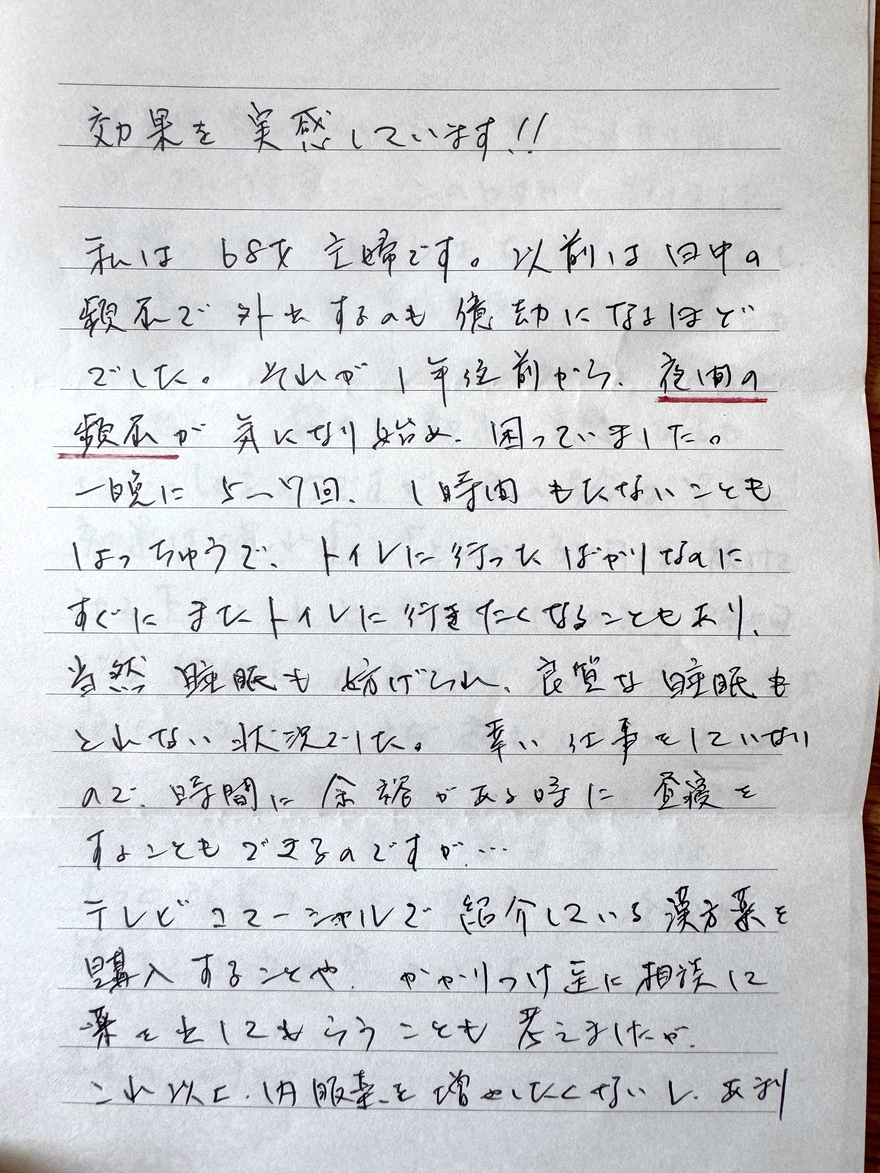 効果を実感しています!!
私は 68才 主婦です。以前は日中の
頻尿で外出するのも億劫になるほど
でした。それが1年位前から、夜間の
頻尿が気になり始め、困っていました。
一晩に5〜7回、1時間もたないことも
しょっちゅうで、トイレに行ったばかりなのに
すぐにまたトイレに行きたくなることもあり、
当然 睡眠も妨げられ、良質な睡眠も
とれない状況でした。 幸い仕事をしていない
ので、時間に余裕がある時に昼寝を
することもできるのですが…
テレビコマーシャルで紹介している漢方薬を
購入することや、かかりつけ医に相談して
薬を出してもらうことも考えましたが、
これ以上、内服薬を増やしたくないし、あまり